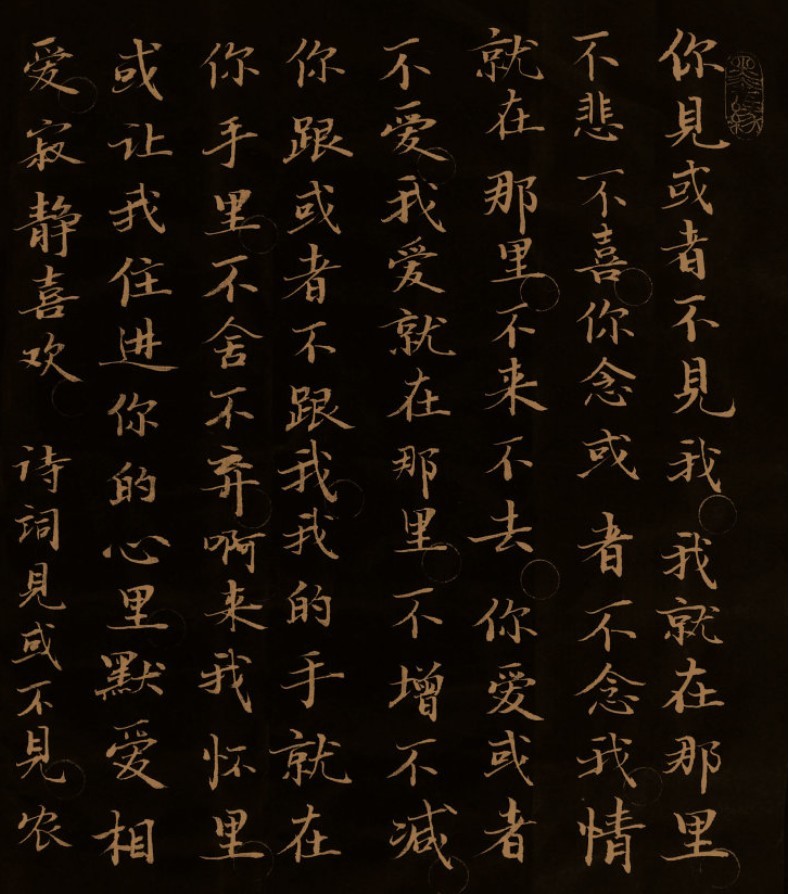 你見或者不見我我就在那里
不悲不喜你念或者不念我情
就在那里不来不去你爱或者
不爱我爱就在那里不增不减
你跟或者不跟我我的手就在
你手里不舍不弃啊来我怀里
或让我住进你的心里默爱相
爱寂静喜欢诗词見或不見农